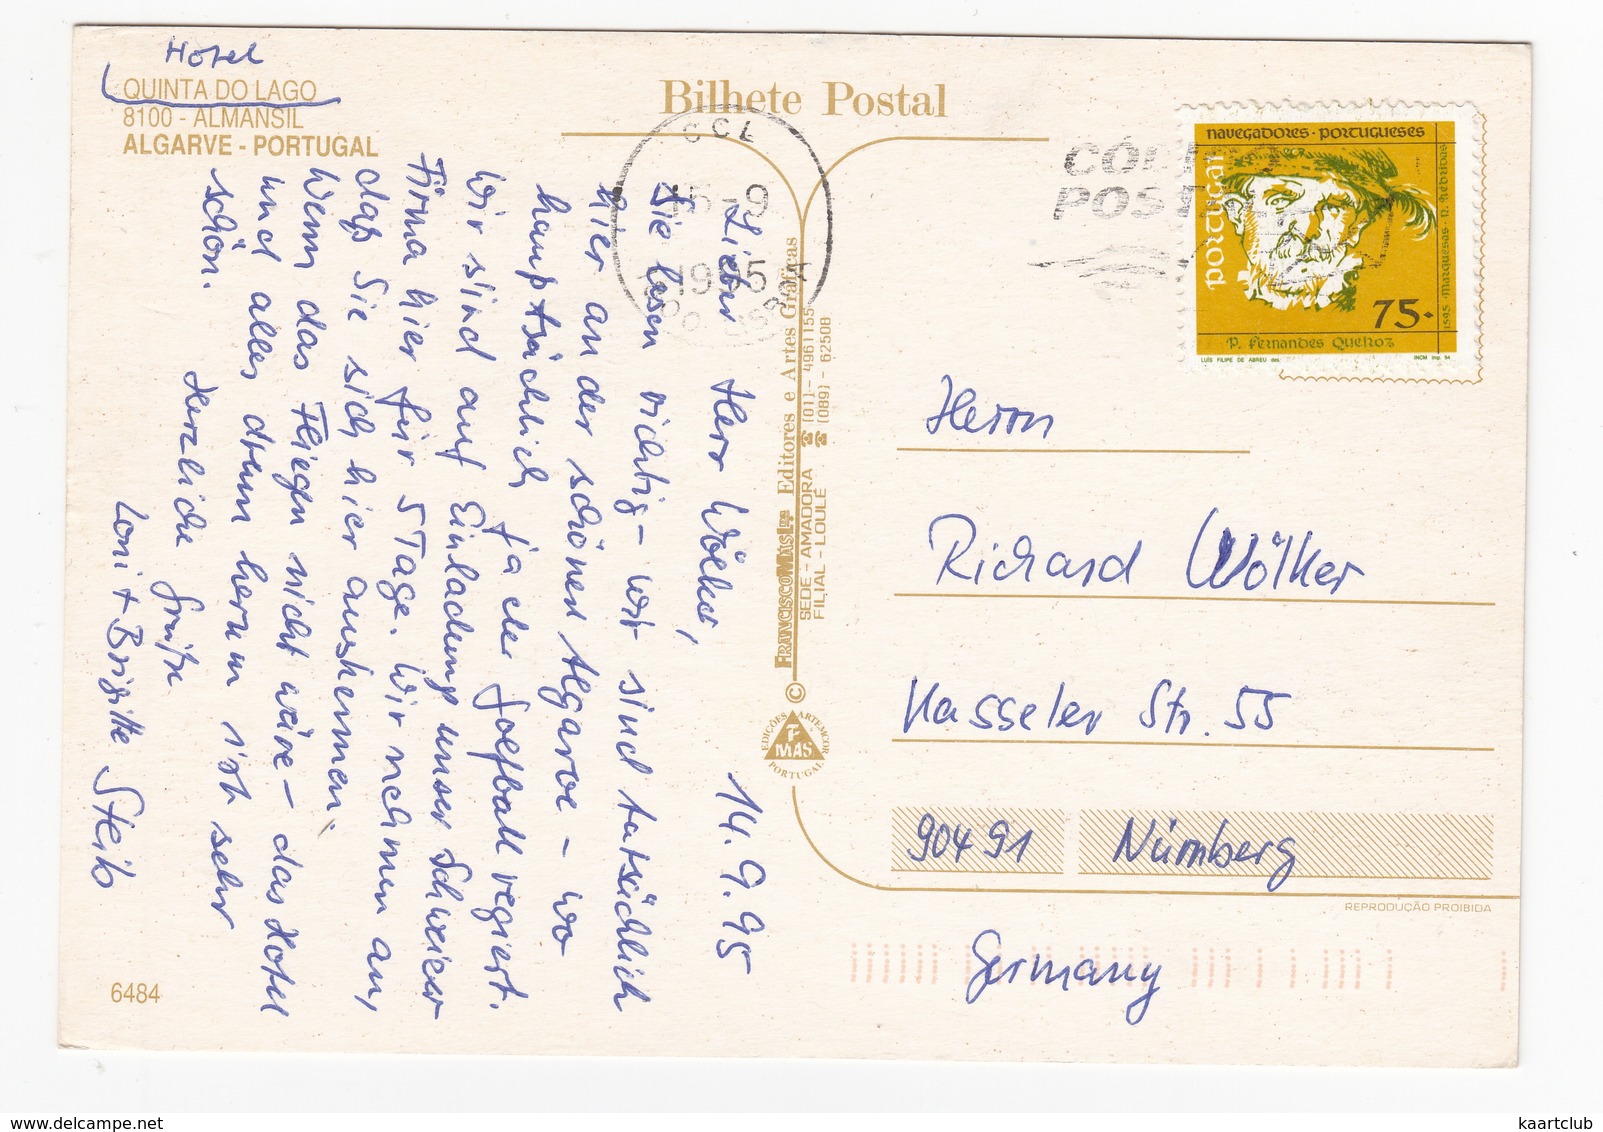 Hotel
QUINTA DO LAGO
8100 - ALMANSIL
ALGARVE - PORTUGAL
Bilhete Postal
14.9.95
Lieber Herr Wölker,
Sie lesen richtig - wir sind tatsächlich
hier an der schönen Algarve - wo
hauptsächlich ja der Golfball regiert.
Wir sind auf Einladung unser Schweizer
Firma hier für 5 Tage. Wir nehmen an,
daß Sie sich hier auskennen.
Wenn das Fliegen nicht wäre - das Hotel
und alles drum herum ist sehr
schön.
Herzliche Grüße
Loni + Brigitte Steib
6484
FRANCISCO MAS Lda Editores e Artes Gráficas
SEDE - AMADORA ☎ (01) - 4961155
FILIAL - LOULÉ ☎ (089) - 62508
©
EDIÇÕES ARTEMCOR
F
MAS
PORTUGAL
CCL
15-9
1995
CÓD
POST
NAVEGADORES · PORTUGUESES
PORTUGAL
1595 · Marquesas · N. Hébridas
75·
P. Fernandes Queiroz
LUÍS FILIPE DE ABREU des.
INCM imp. 94
Herrn
Richard Wölker
Kasseler Str. 55
90491 Nürnberg
REPRODUÇÃO PROIBIDA
Germany
kaartclub